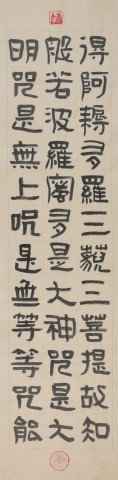 得阿耨多羅三藐三菩提故知
般若波羅蜜多是大神咒是大
明咒是無上咒是無等等咒能